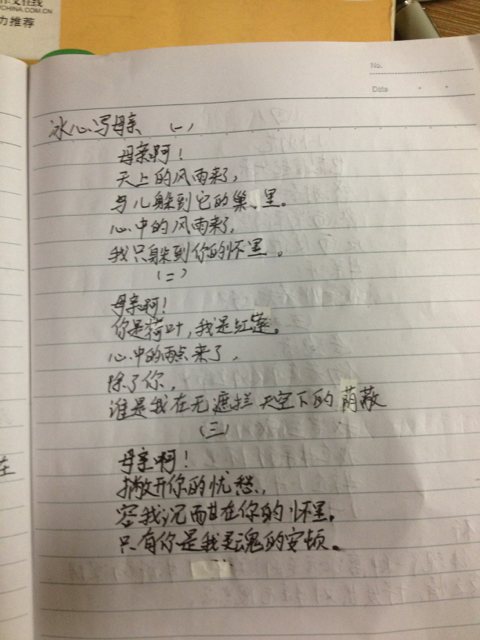 作文在线
CHINA.COM.CN
力推荐
No.
Date
冰心写母亲 (一)
母亲啊!
天上的风雨来了,
鸟儿躲到它的巢里。
心中的风雨来了,
我只躲到你的怀里。
(二)
母亲啊!
你是荷叶,我是红莲。
心中的雨点来了,
除了你,
谁是我在无遮拦天空下的荫蔽
(三)
母亲啊!
撇开你的忧愁,
容我沉酣在你的怀里,
只有你是我灵魂的安顿。
在